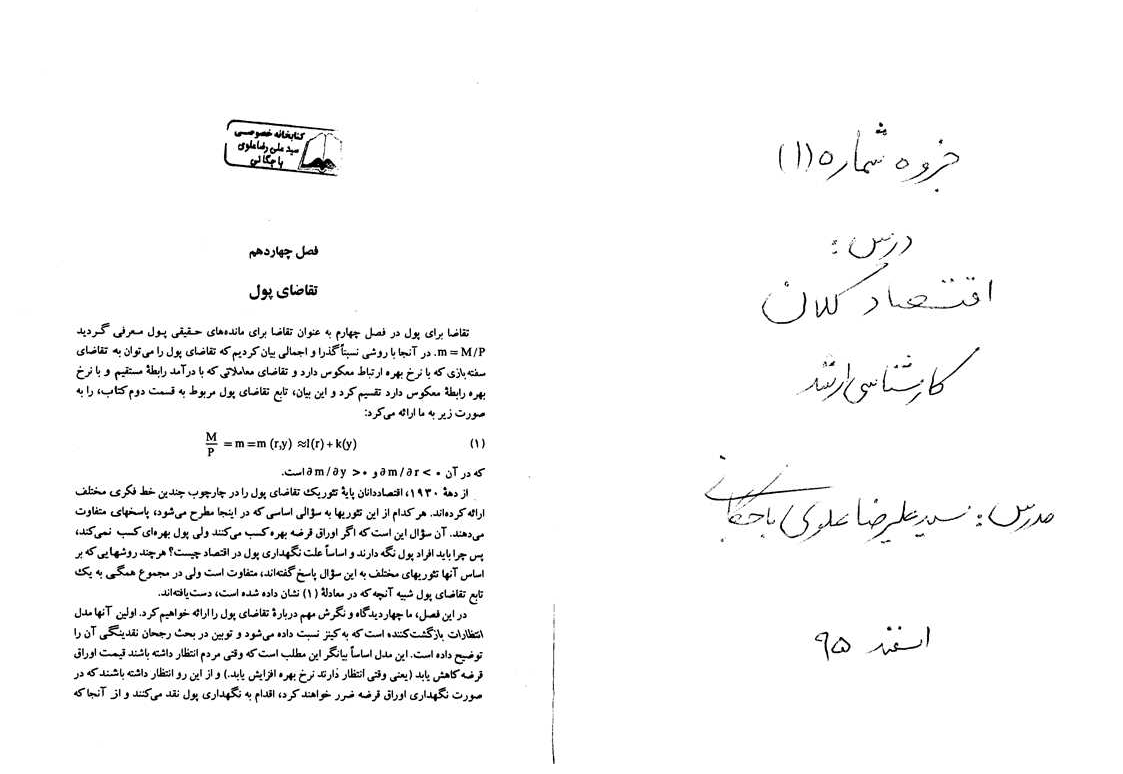 جزوه شماره (۱)
درس:
اقتصاد کلان
کارشناسی ارشد
مدرس: سید علیرضا علوی باجگانی
اسفند ۹۵
کتابخانه خصوصی
سید علی رضا علوی
باجگانی
فصل چهاردهم
تقاضای پول
تقاضا برای پول در فصل چهارم به عنوان تقاضا برای مانده‌های حقیقی پول معرفی گردید
m = M/P. در آنجا با روشی نسبتاً گذرا و اجمالی بیان کردیم که تقاضای پول را می‌توان به تقاضای
سفته‌بازی که با نرخ بهره ارتباط معکوس دارد و تقاضای معاملاتی که با درآمد رابطهٔ مستقیم و با نرخ
بهره رابطهٔ معکوس دارد تقسیم کرد و این بیان، تابع تقاضای پول مربوط به قسمت دوم کتاب، را به
صورت زیر به ما ارائه می‌کرد:
(۱) M/P = m = m (r,y) ≈ l(r) + k(y)
که در آن ∂m/∂r < ۰ و ∂m/∂y > ۰ است.
از دههٔ ۱۹۳۰، اقتصاددانان پایهٔ تئوریک تقاضای پول را در چارچوب چندین خط فکری مختلف
ارائه کرده‌اند. هر کدام از این تئوریها به سؤالی اساسی که در اینجا مطرح می‌شود، پاسخهای متفاوت
می‌دهند. آن سؤال این است که اگر اوراق قرضه بهره کسب می‌کنند ولی پول بهره‌ای کسب نمی‌کند،
پس چرا باید افراد پول نگه دارند و اساساً علت نگهداری پول در اقتصاد چیست؟ هرچند روشهایی که بر
اساس آنها تئوریهای مختلف به این سؤال پاسخ گفته‌اند، متفاوت است ولی در مجموع همگی به یک
تابع تقاضای پول شبیه آنچه که در معادلهٔ (۱) نشان داده شده است، دست‌یافته‌اند.
در این فصل، ما چهار دیدگاه و نگرش مهم دربارهٔ تقاضای پول را ارائه خواهیم کرد. اولین آنها مدل
انتظارات بازگشت‌کننده است که به کینز نسبت داده می‌شود و توبین در بحث رجحان نقدینگی آن را
توضیح داده است. این مدل اساساً بیانگر این مطلب است که وقتی مردم انتظار داشته باشند قیمت اوراق
قرضه کاهش یابد (یعنی وقتی انتظار دارند نرخ بهره افزایش یابد.) و از این رو انتظار داشته باشند که در
صورت نگهداری اوراق قرضه ضرر خواهند کرد، اقدام به نگهداری پول نقد می‌کنند و از آنجا که